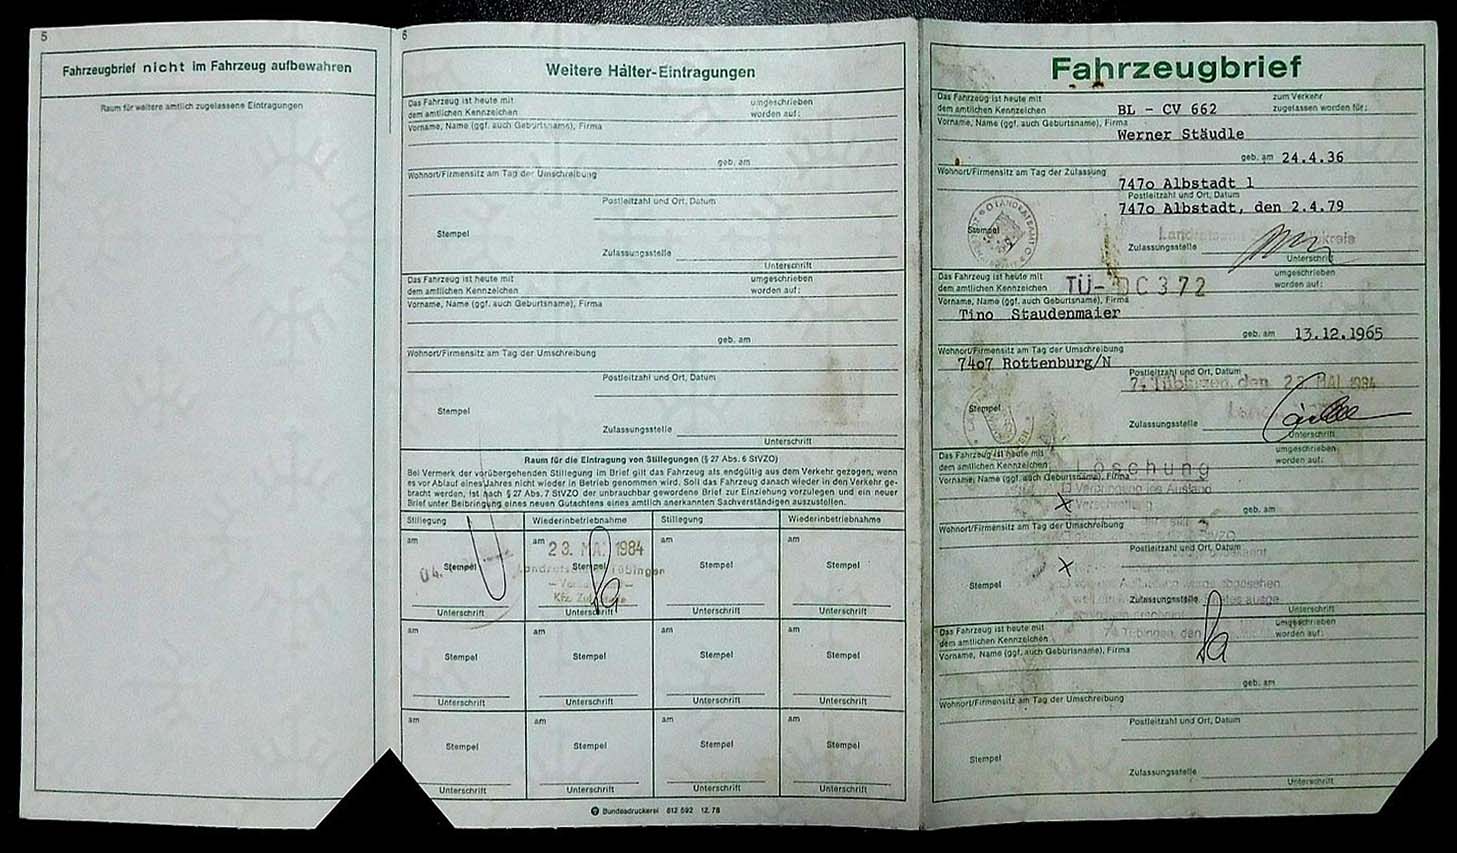 5
Fahrzeugbrief nicht im Fahrzeug aufbewahren
Raum für weitere amtlich zugelassene Eintragungen
6
Weitere Halter-Eintragungen
Das Fahrzeug ist heute mit umgeschrieben
dem amtlichen Kennzeichen worden auf:
Vorname, Name (ggf. auch Geburtsname), Firma
geb. am
Wohnort/Firmensitz am Tag der Umschreibung
Postleitzahl und Ort, Datum
Stempel
Zulassungsstelle
Unterschrift
Das Fahrzeug ist heute mit umgeschrieben
dem amtlichen Kennzeichen worden auf:
Vorname, Name (ggf. auch Geburtsname), Firma
geb. am
Wohnort/Firmensitz am Tag der Umschreibung
Postleitzahl und Ort, Datum
Stempel
Zulassungsstelle
Unterschrift
Raum für die Eintragung von Stillegungen (§ 27 Abs. 6 StVZO)
Bei Vermerk der vorübergehenden Stillegung im Brief gilt das Fahrzeug als endgültig aus dem Verkehr gezogen, wenn
es vor Ablauf eines Jahres nicht wieder in Betrieb genommen wird. Soll das Fahrzeug danach wieder in den Verkehr ge-
bracht werden, ist nach § 27 Abs. 7 StVZO der unbrauchbar gewordene Brief zur Einziehung vorzulegen und ein neuer
Brief unter Beibringung eines neuen Gutachtens eines amtlich anerkannten Sachverständigen auszustellen.
Stillegung Wiederinbetriebnahme Stillegung Wiederinbetriebnahme
am am 23. MAI 1984 am am
04. Stempel Stempel Stempel Stempel
Unterschrift Unterschrift Unterschrift Unterschrift
am am am am
Stempel Stempel Stempel Stempel
Unterschrift Unterschrift Unterschrift Unterschrift
am am am am
Stempel Stempel Stempel Stempel
Unterschrift Unterschrift Unterschrift Unterschrift
Bundesdruckerei 612 692 12.78
Fahrzeugbrief
Das Fahrzeug ist heute mit zum Verkehr
dem amtlichen Kennzeichen BL - CV 662 zugelassen worden für:
Vorname, Name (ggf. auch Geburtsname), Firma
Werner Stäudle
geb. am 24.4.36
Wohnort/Firmensitz am Tag der Zulassung
747o Albstadt 1
Postleitzahl und Ort, Datum
747o Albstadt, den 2.4.79
Stempel
Zulassungsstelle
Unterschrift
Das Fahrzeug ist heute mit umgeschrieben
dem amtlichen Kennzeichen TÜ- DC372 worden auf:
Vorname, Name (ggf. auch Geburtsname), Firma
Tino Staudenmaier
geb. am 13.12.1965
Wohnort/Firmensitz am Tag der Umschreibung
74o7 Rottenburg/N
Postleitzahl und Ort, Datum
74 Tübingen, den 23. MAI 1984
Stempel
Zulassungsstelle
Unterschrift
Das Fahrzeug ist heute mit umgeschrieben
dem amtlichen Kennzeichen Löschung worden auf:
Vorname, Name (ggf. auch Geburtsname), Firma
geb. am
Wohnort/Firmensitz am Tag der Umschreibung
Postleitzahl und Ort, Datum
Stempel
Zulassungsstelle
Unterschrift
Das Fahrzeug ist heute mit 74 Tübingen, den umgeschrieben
dem amtlichen Kennzeichen worden auf:
Vorname, Name (ggf. auch Geburtsname), Firma
geb. am
Wohnort/Firmensitz am Tag der Umschreibung
Postleitzahl und Ort, Datum
Stempel
Zulassungsstelle
Unterschrift